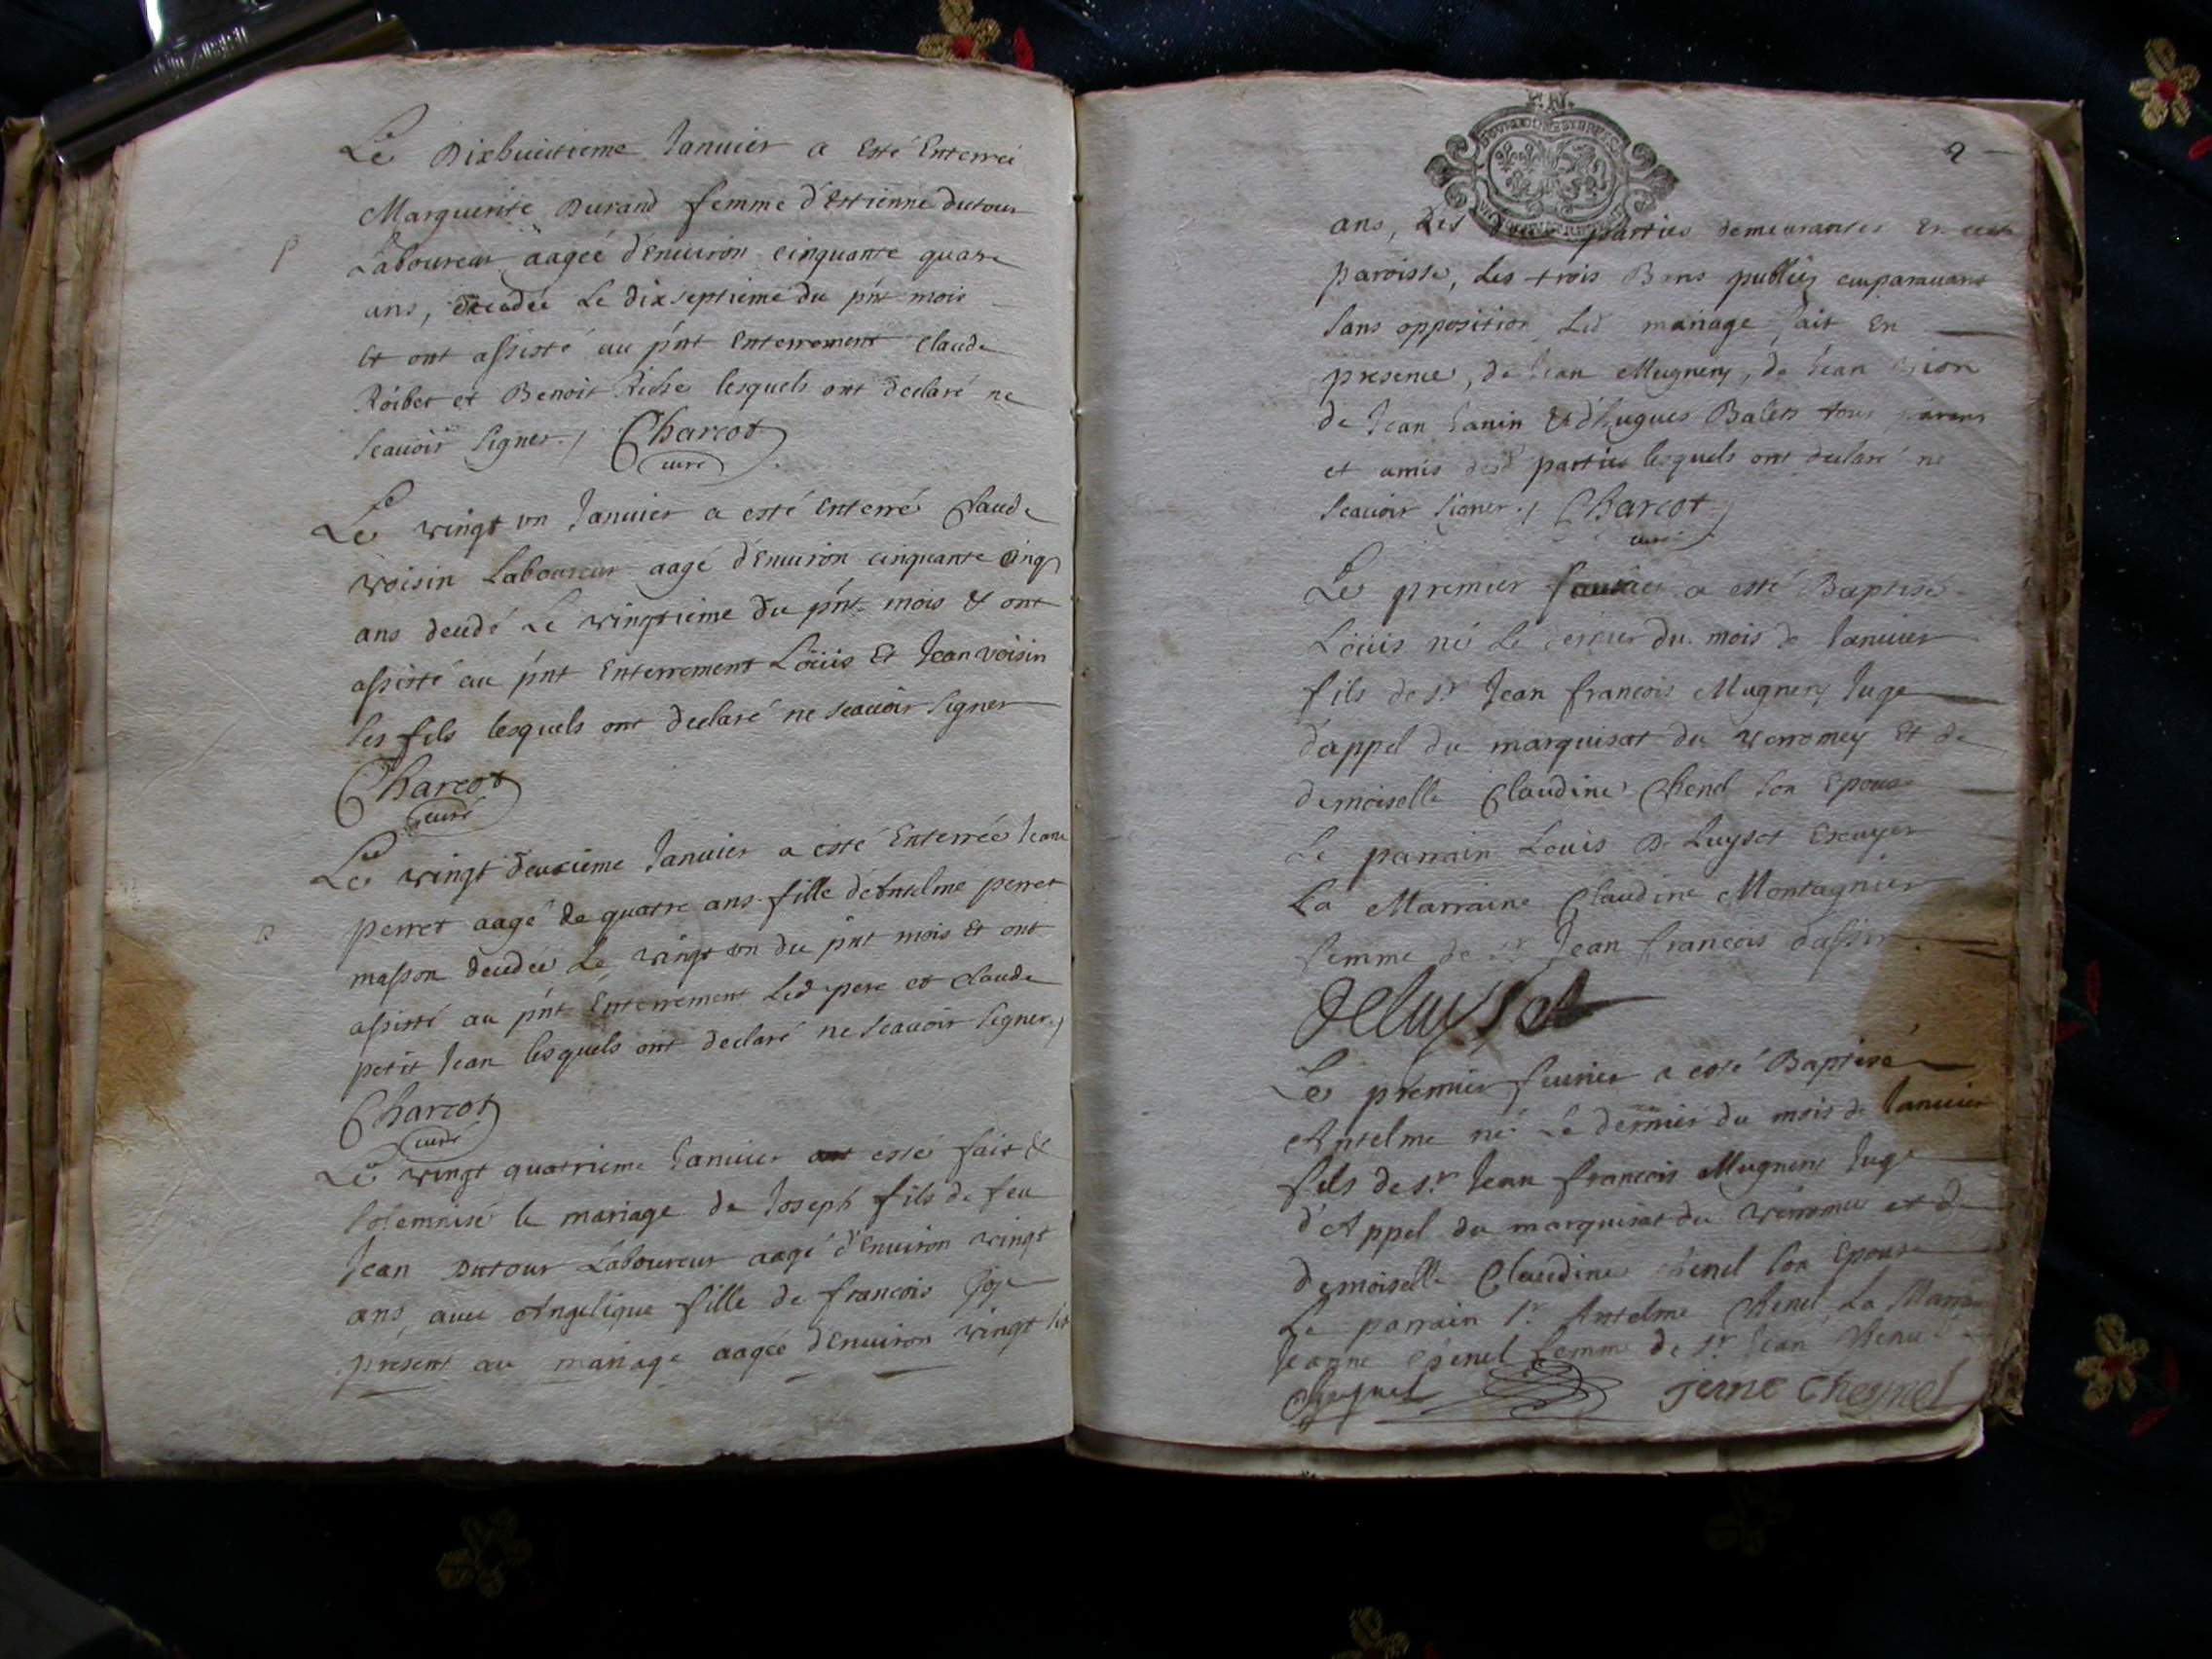 Le Dixhuictieme Januier a esté Enterreé
Marguerite Durand femme d'Estienne dutour
Laboureur aageé d'Enuiron cinquante quatre
ans, decedeé Le dixseptieme du pńt mois
Et ont assisté au pńt Enterrement Claude
et Benoit lesquels ont declaré ne
scauoir signer./ Charcot
curé
Le vingt vn Januier a esté Enterré Claude
voisin Laboureur aagé d'Enuiron cinquante Cinq
ans decedé Le vingtieme du pńt mois & ont
assisté au pńt Enterrement Loüis Et Jean voisin
ses fils lesquels ont declaré ne scauoir signer
Charcot
curé
Le vingt deuxieme Januier a esté Enterreé Jeane
perret aagé de quatre ans fille d'Antelme perret
masson decedeé Le vingt vn du pńt mois Et ont
assisté au pńt Enterrement Led pere et Claude
petit Jean lesquels ont declaré ne scauoir signer./
Charcot
curé
Le vingt quatrieme Januier esté fait &
solemnisé le mariage de Joseph fils de feu
Jean Dutour Laboureur aagé d'Enuiron vingt
ans, auec Angelique fille de francois
present au mariage aageé d'Enuiron vingt six
2
ans, Les parties demeurantes En
paroisse, Les trois Bans publiez auparauant
sans opposition Led mariage fait En
presence, de Jean Mugnery, de Jean
de Jean Janin & d'hugues Balets tous parens
et amis desd parties lesquels ont declaré ne
scauoir signer./ Charcot
curé
Le premier a esté Baptisé
Loüis né Le dernier du mois de Januier
fils de sr Jean francois Mugnery Juge
d'appel du marquisat du verromey Et de
demoiselle Claudine Chenel son Epouse
Le parrain Louis De Luysset Escuyer
La Marraine Claudine Montagnier
femme de sr Jean francois
DeLuysset
Le premier feurier a esté Baptisé
Antelme né Le dernier du mois de Januier
fils de sr Jean francois Mugnery Juge
d'Appel du marquisat du et de
demoiselle Claudine Chenel son Epouse
Le parrain sr Antelme Chenel La
Jeanne Chenel femme de sr Jean
jeane Cheynel